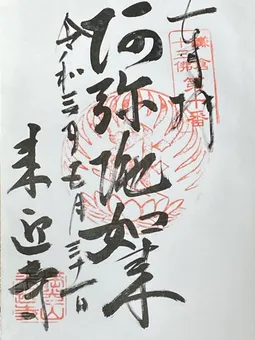 奉拝
鎌倉
十三佛 第十番
阿弥陀如来
令和三年十月三十一日
来迎寺